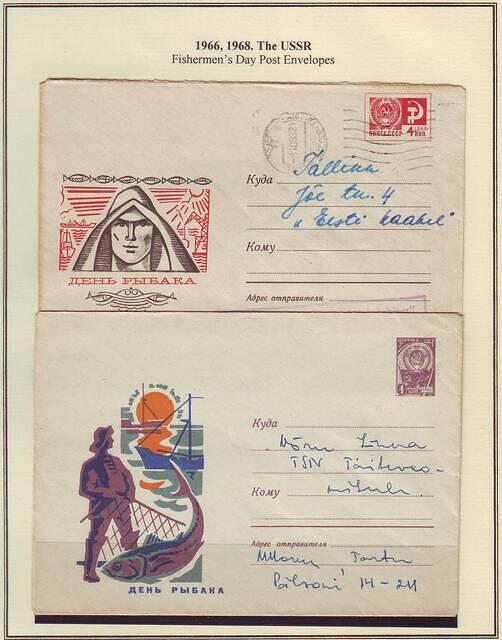 1966, 1968. The USSR
Fishermen's Day Post Envelopes
ПОЧТА СССР 4 КОП
Куда Tallinn
Jõe tn. 4
Кому „Eesti Kaabel"
Адрес отправителя
ДЕНЬ РЫБАКА
4
Куда
Võru Linna
TSN Täitevko-
Кому miteele.
Адрес отправителя
Tartu
14-24
ДЕНЬ РЫБАКА